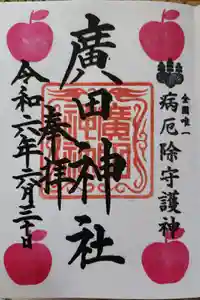 全国唯一
病厄除守護神
廣田神社
奉拝
令和六年六月三十日